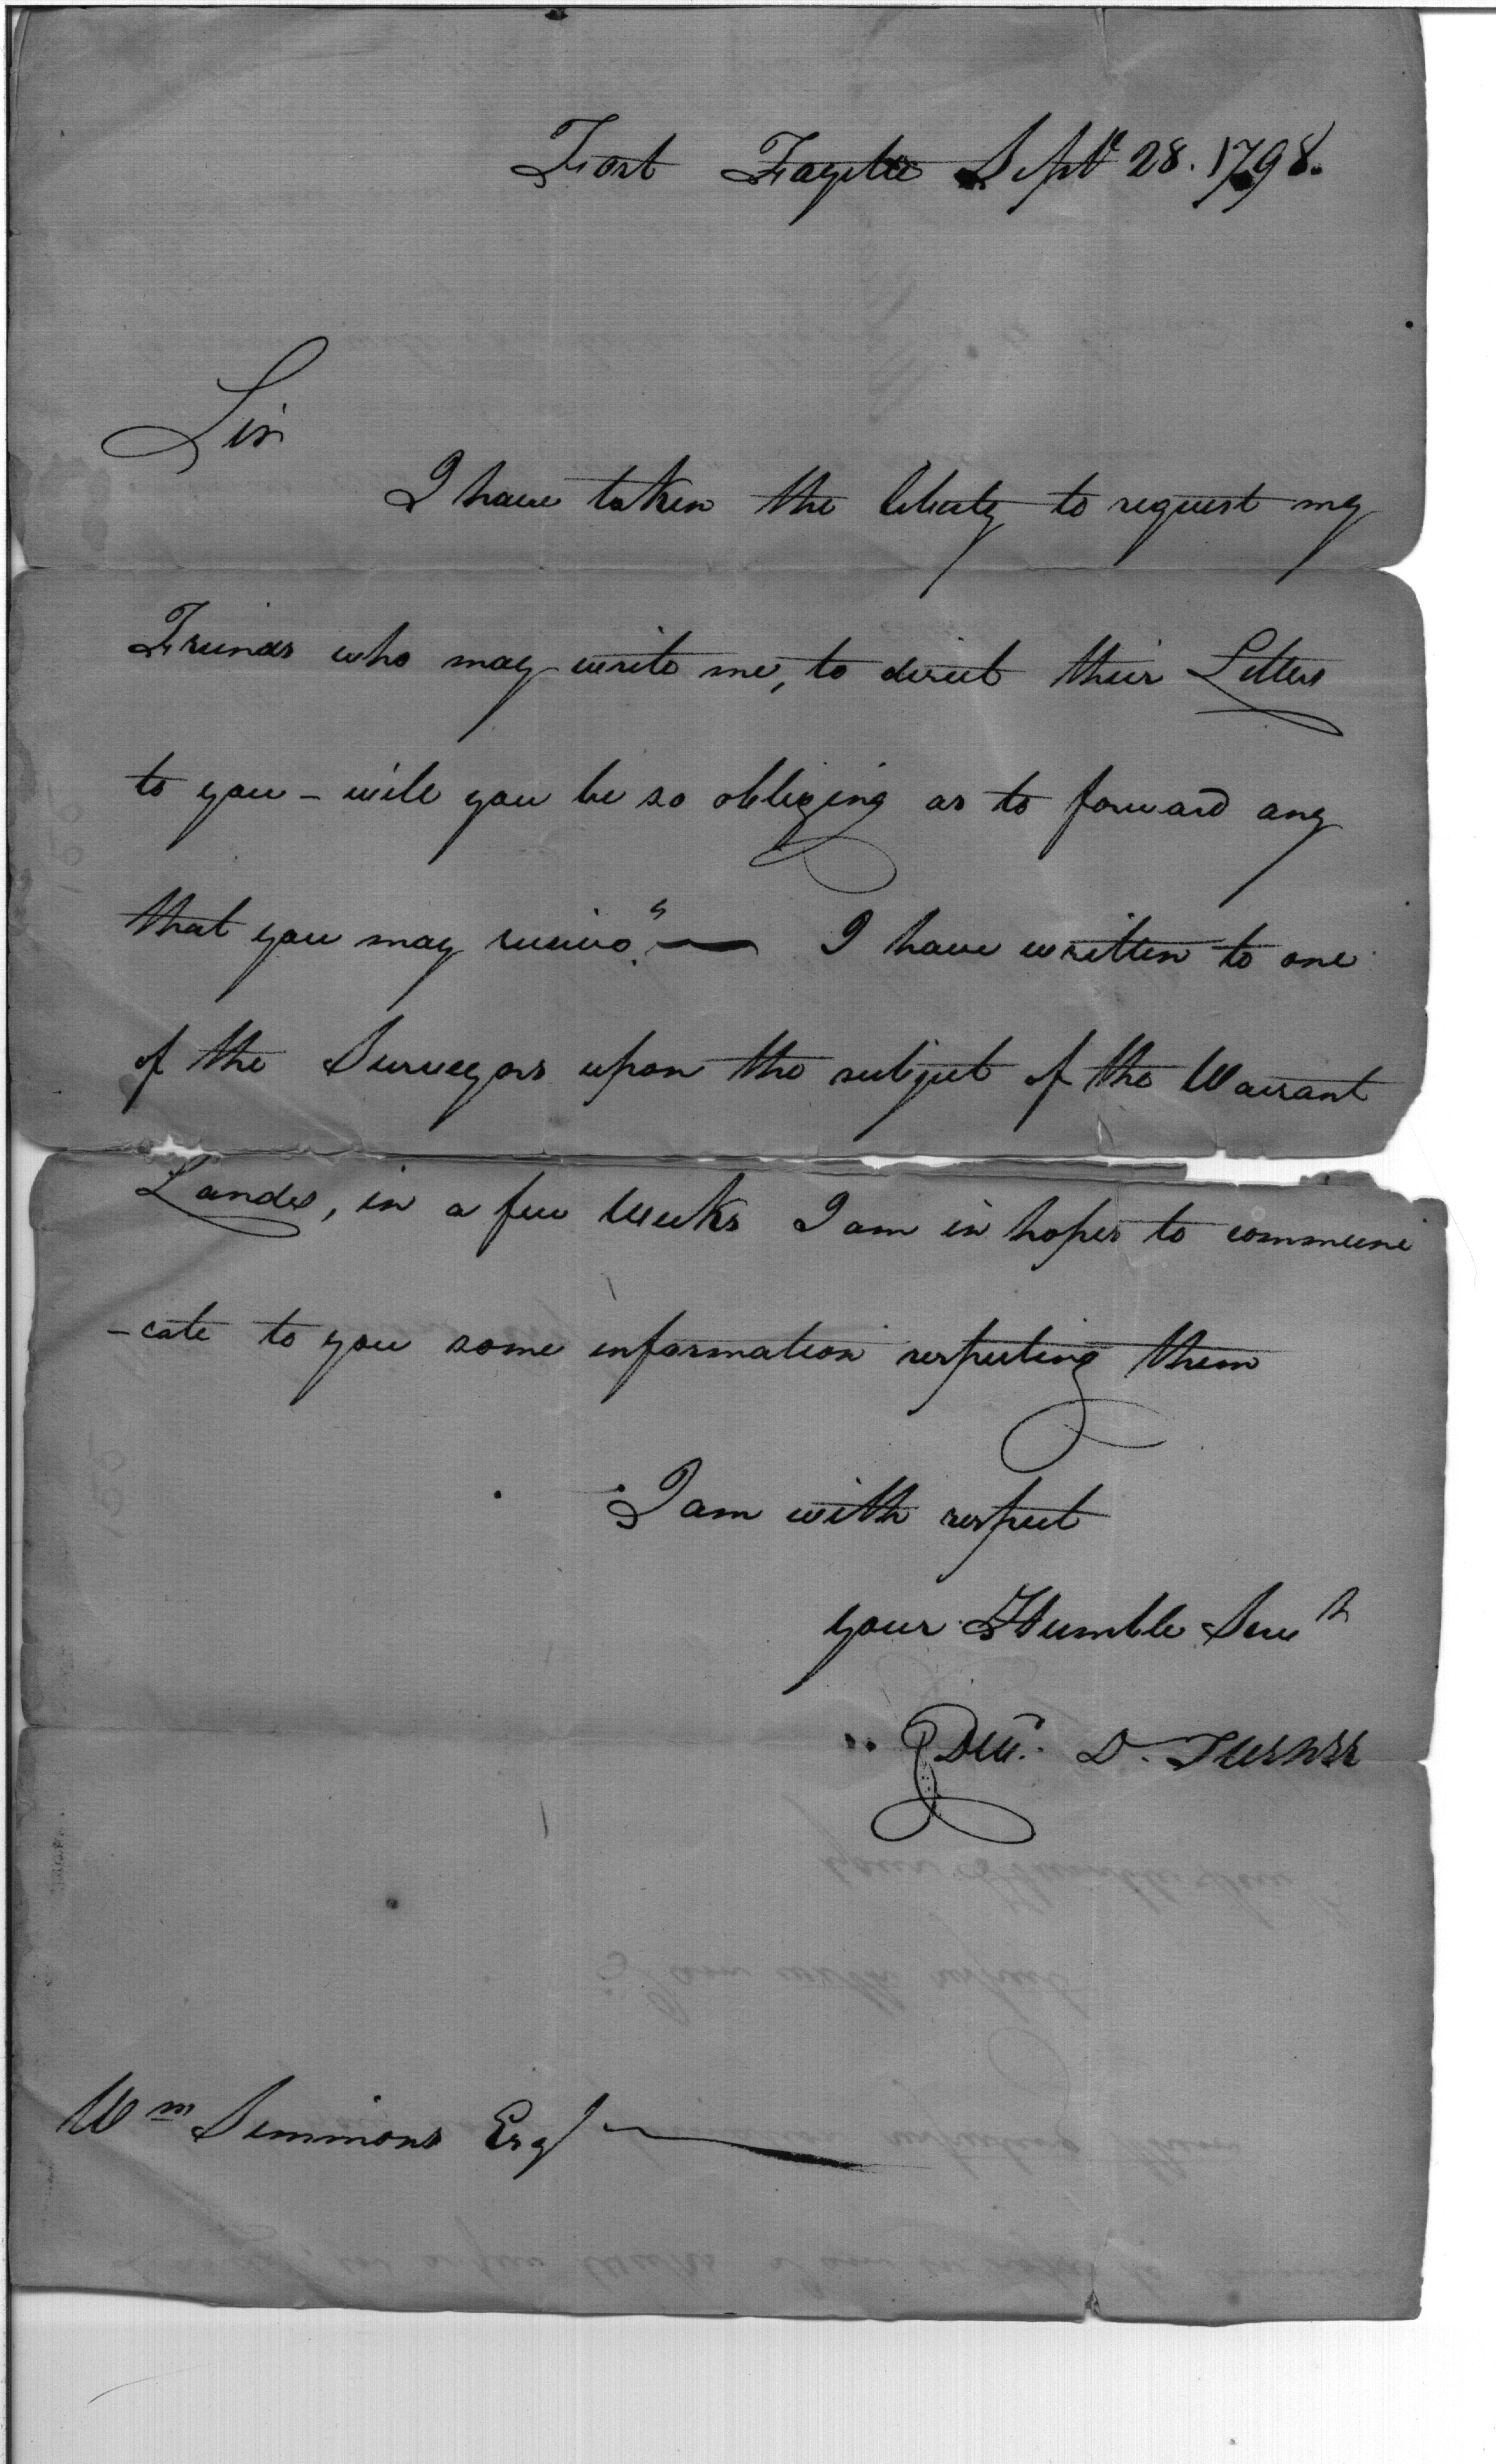 Fort Fayette Sept 28. 1798.
Sir
I have taken the liberty to request my
Friends who may write me, to direct their Letters
to you - will you be so obliging as to forward any
that you may receive. — I have written to one
of the Surveyors upon the subject of the Warrant
Lands, in a few Weeks I am in hopes to communi
-cate to you some information respecting them
I am with respect
your Humble Servt
Edwd. D. Turner
Wm Simmons Esqr